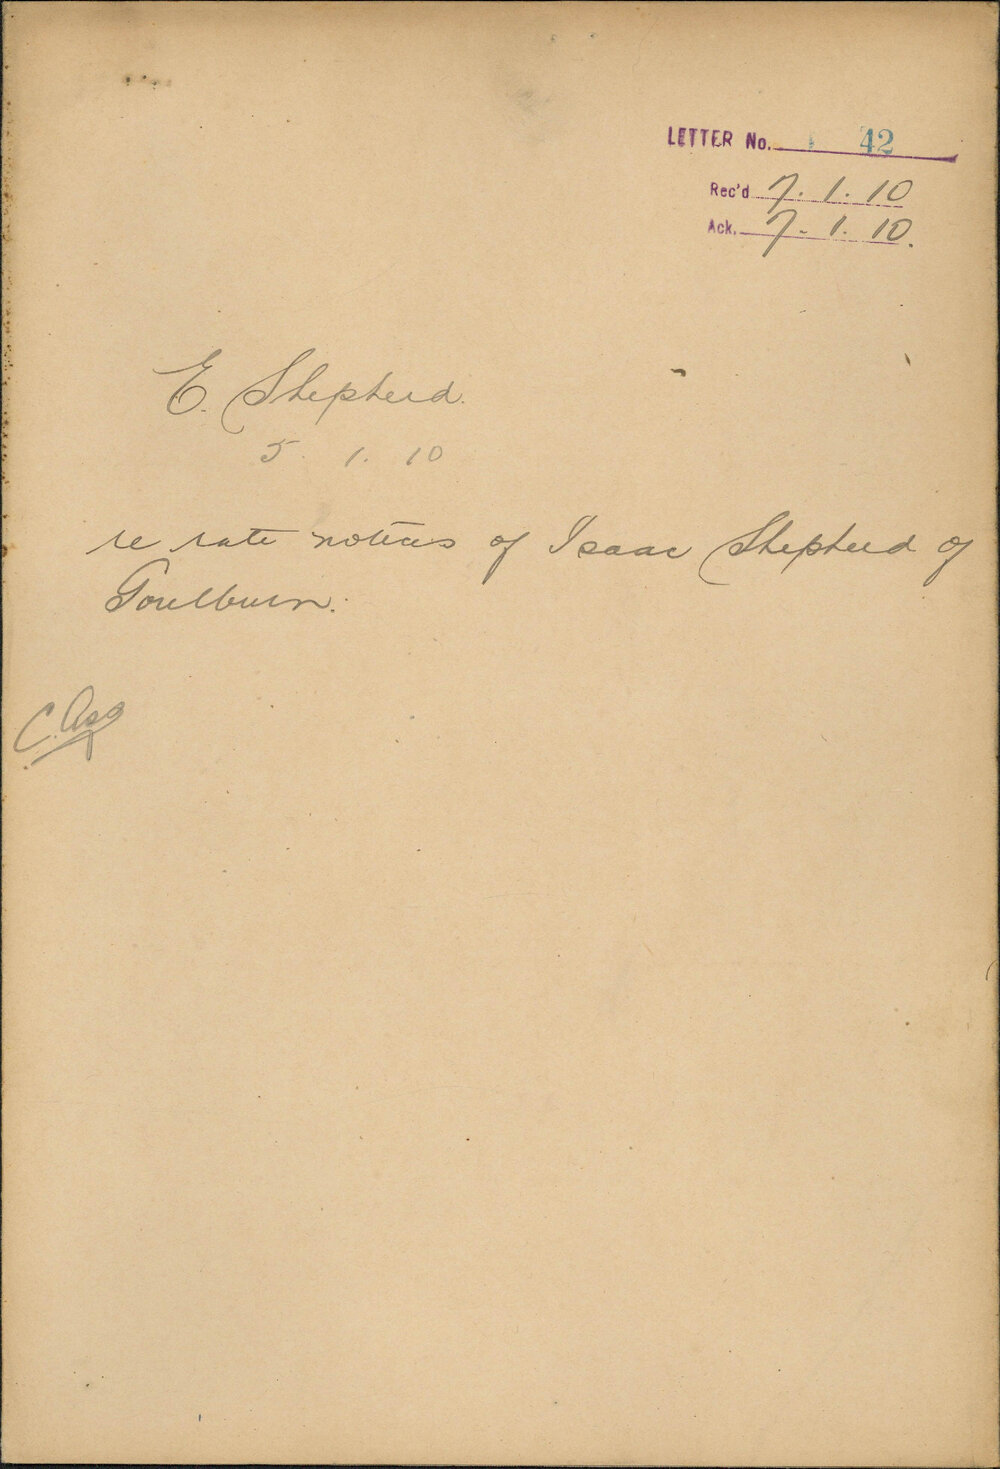 LETTER No. 42
Rec'd 7. 1. 10
Ack. 7. 1. 10.
E. Shepherd.
5. 1. 10
re rate notices of Isaac Shepherd of
Goulburn.